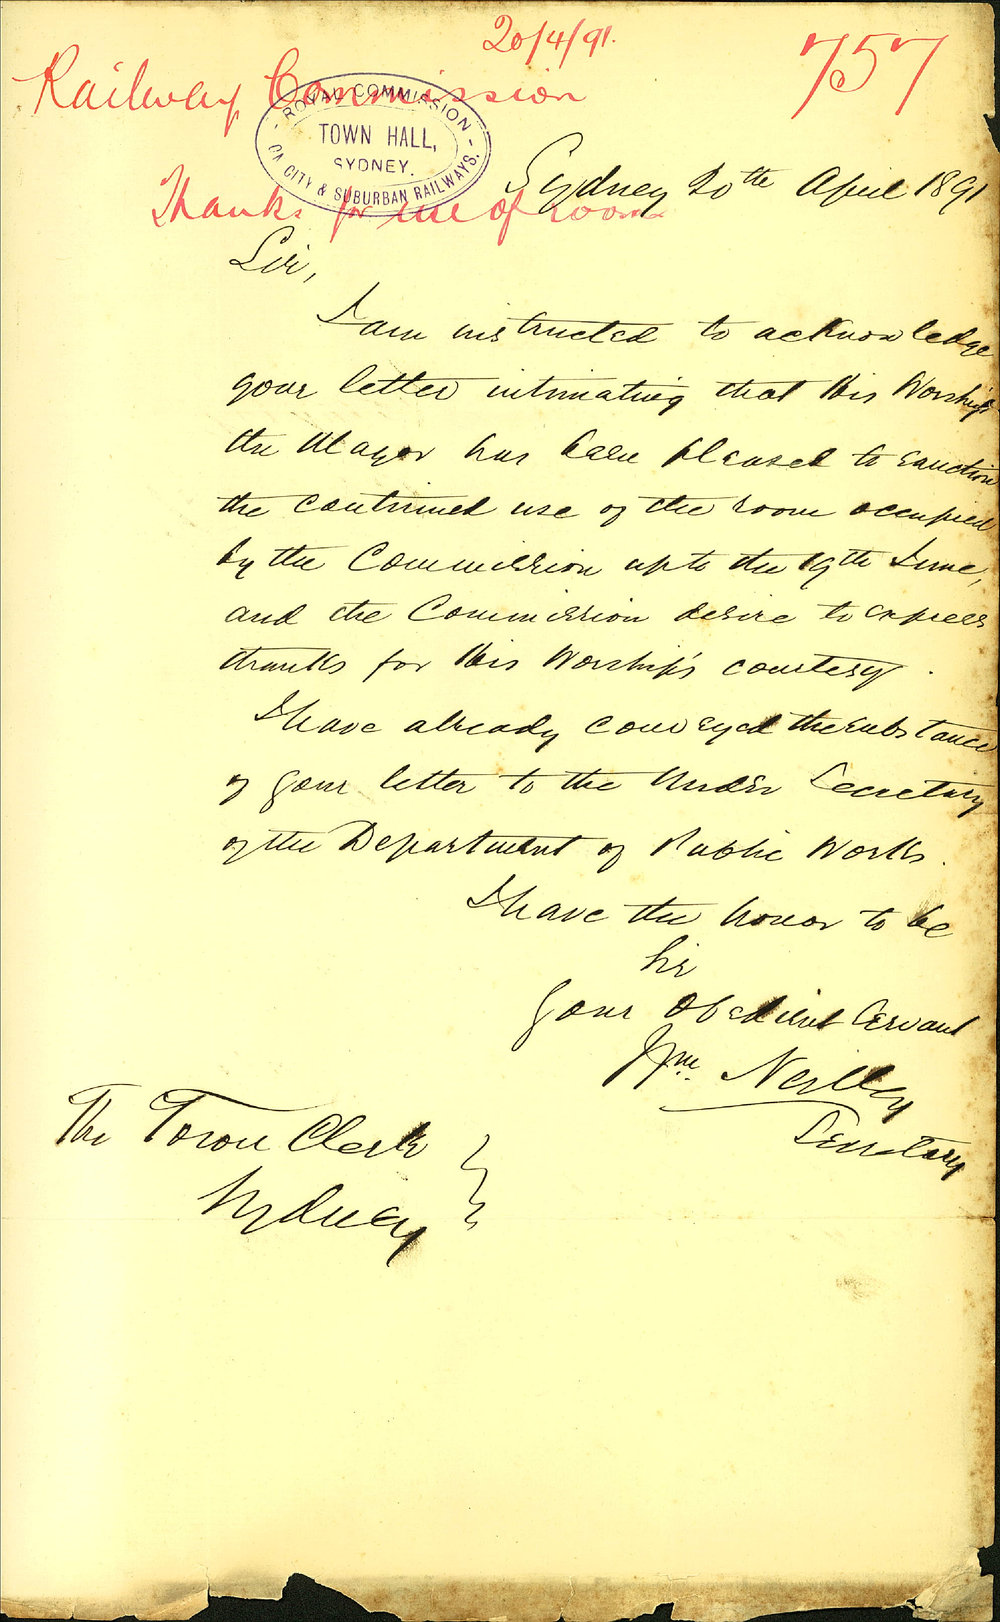 20/4/91.
Railway Commission
757
ROYAL COMMISSION
TOWN HALL,
SYDNEY.
CITY & SUBURBAN RAILWAYS.
Thanks for use of room
Sydney 20th April 1891
Sir,
I am instructed to acknowledge
your letter intimating that His Worship
the Mayor has been pleased to sanction
the continued use of the room occupied
by the Commission up to the 19th June,
and the Commission desire to express
thanks for His Worship's courtesy.
I have already conveyed the substance
of your letter to the Under Secretary
of the Department of Public Works.
I have the honor to be
Sir
Your Obedient Servant
Wm. Neilley
Secretary
The Town Clerk
Sydney